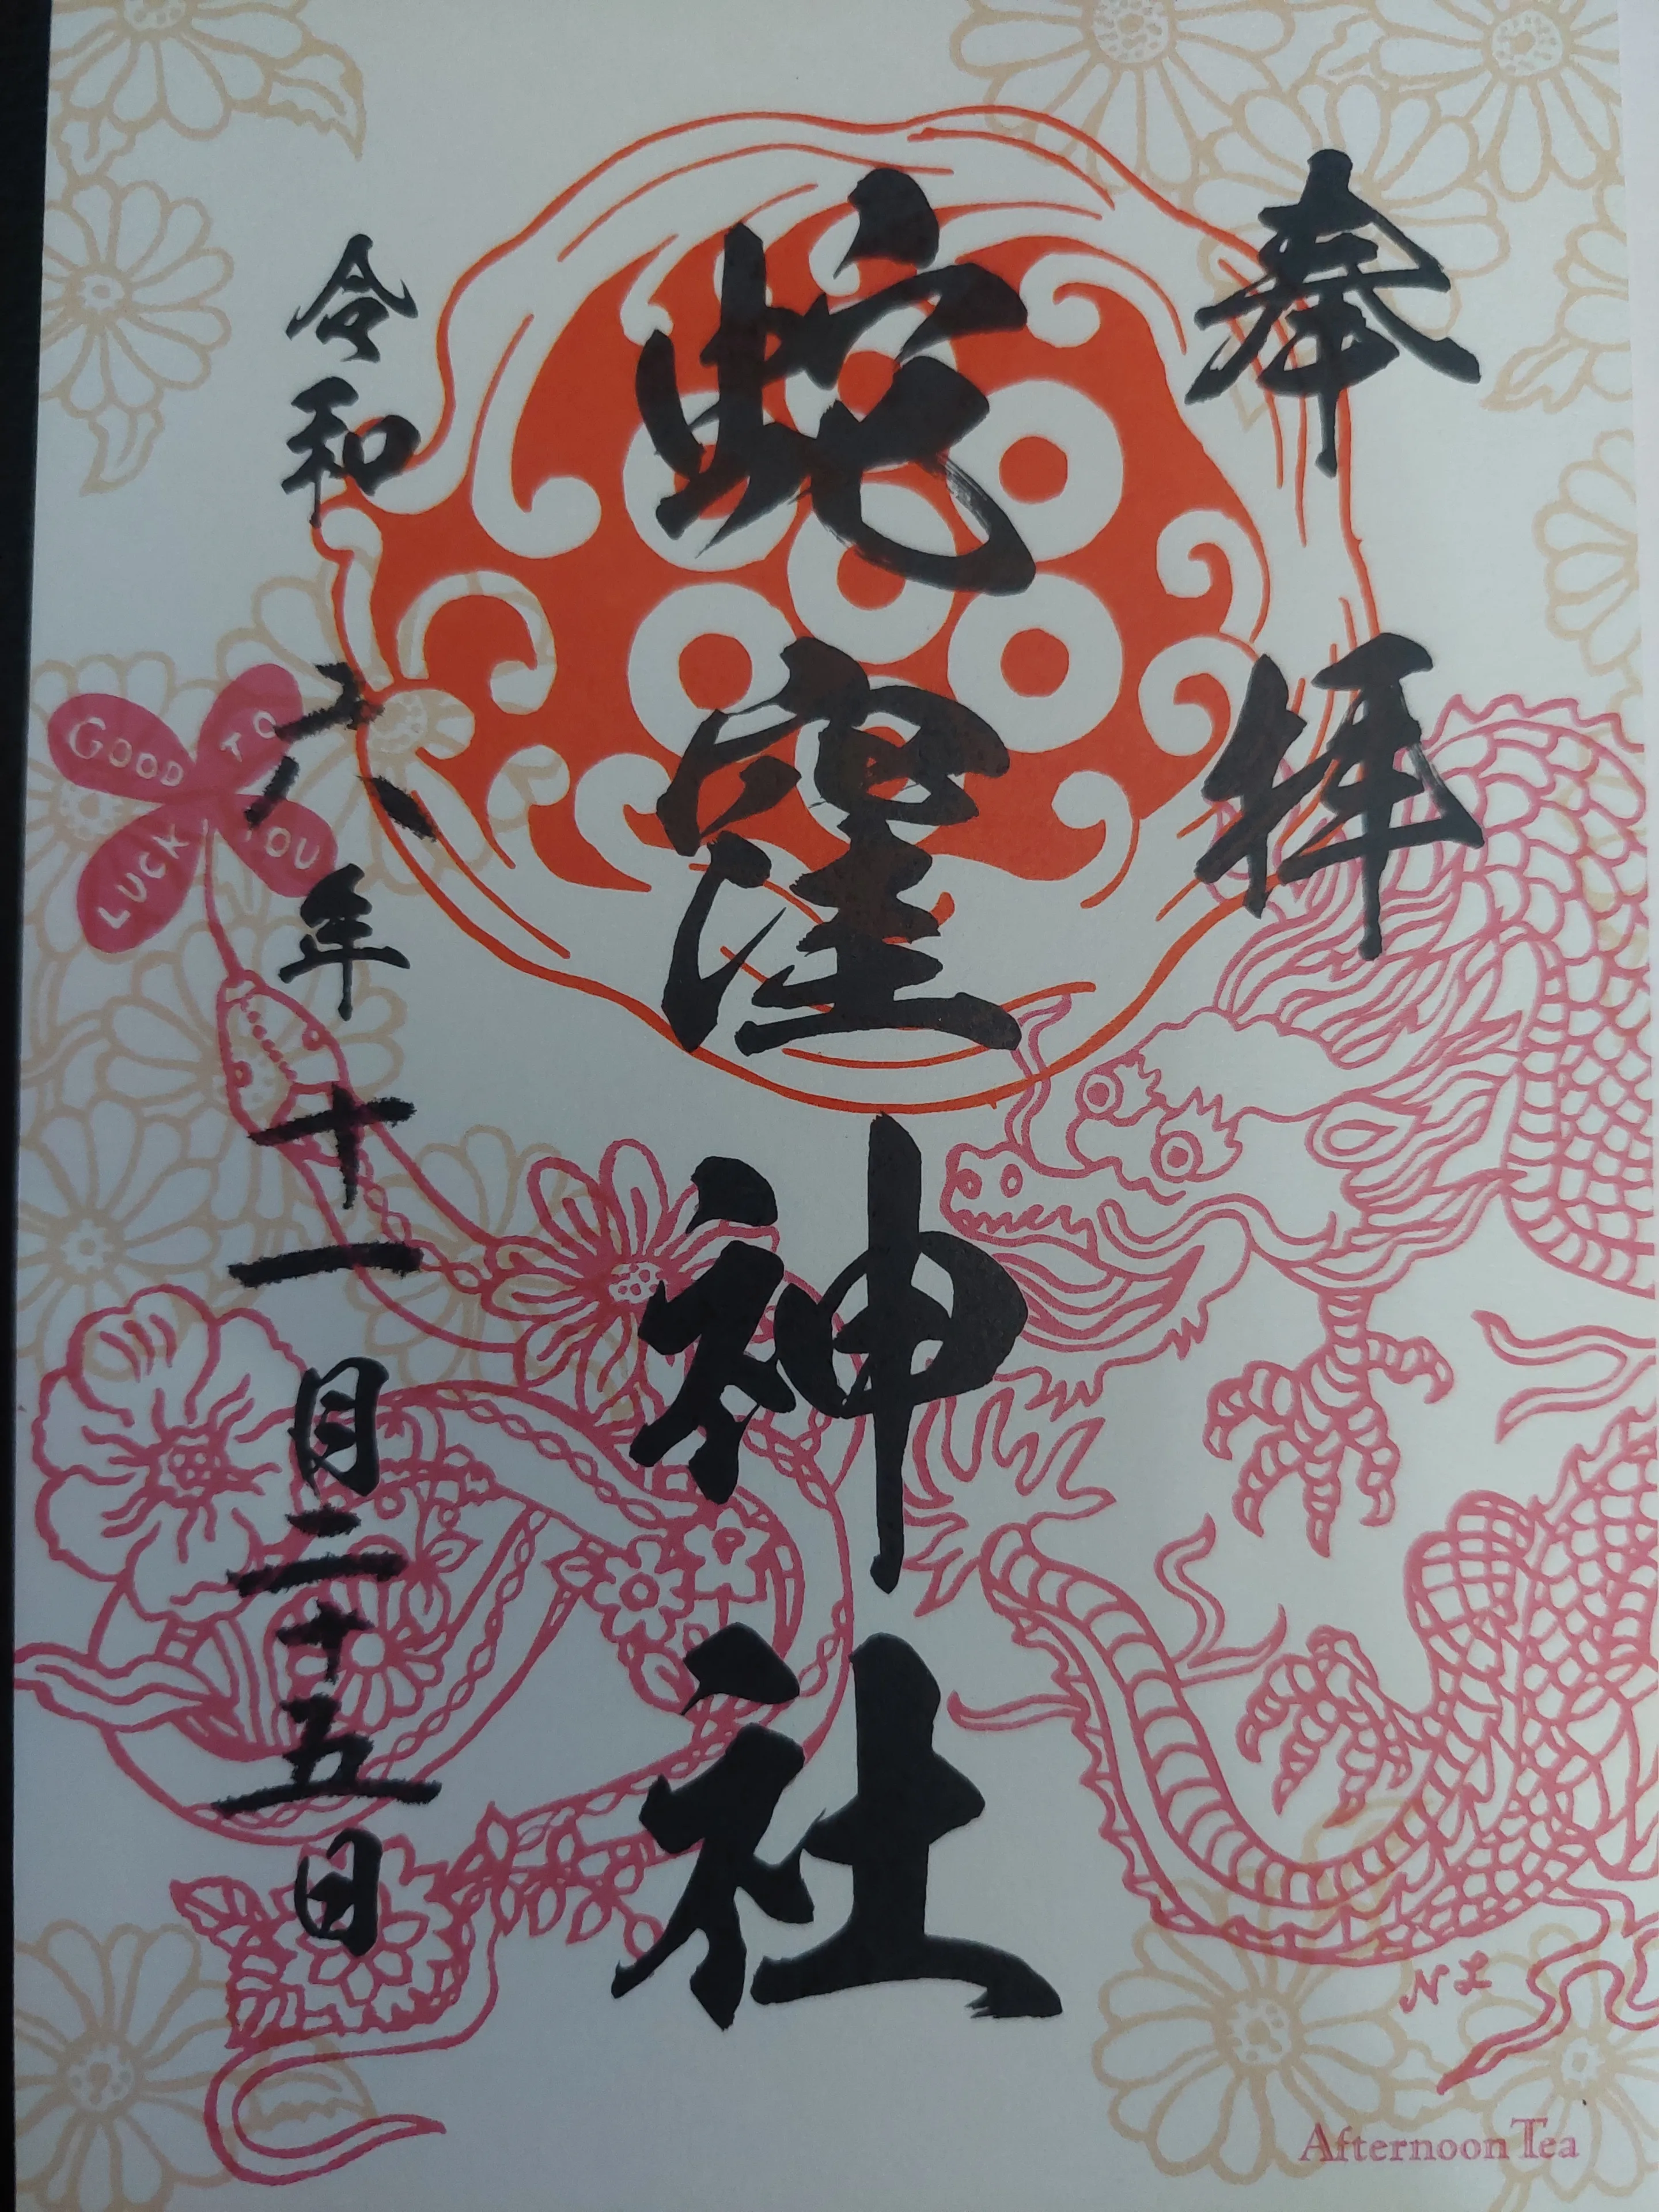 奉拝
蛇窪神社
令和六年十一月二十五日
GOOD
LUCK
TO
YOU
NL
Afternoon Tea